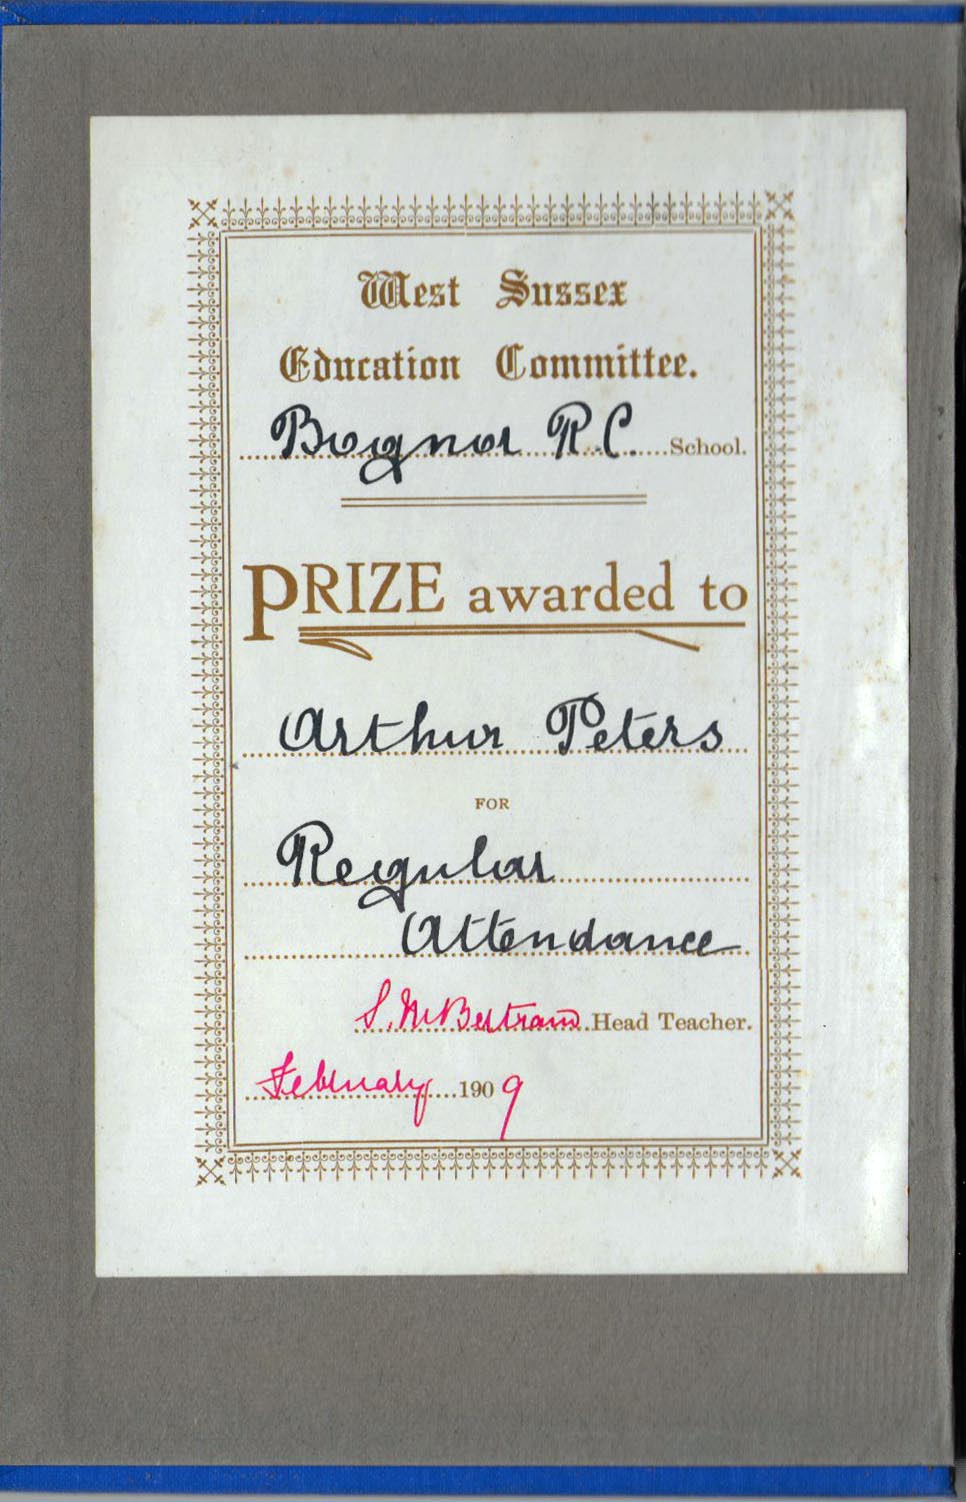 West Sussex
Education Committee.
Bognor R.C. School.
PRIZE awarded to
Arthur Peters
FOR
Regular
Attendance
S. M. Bertram Head Teacher.
February 1909